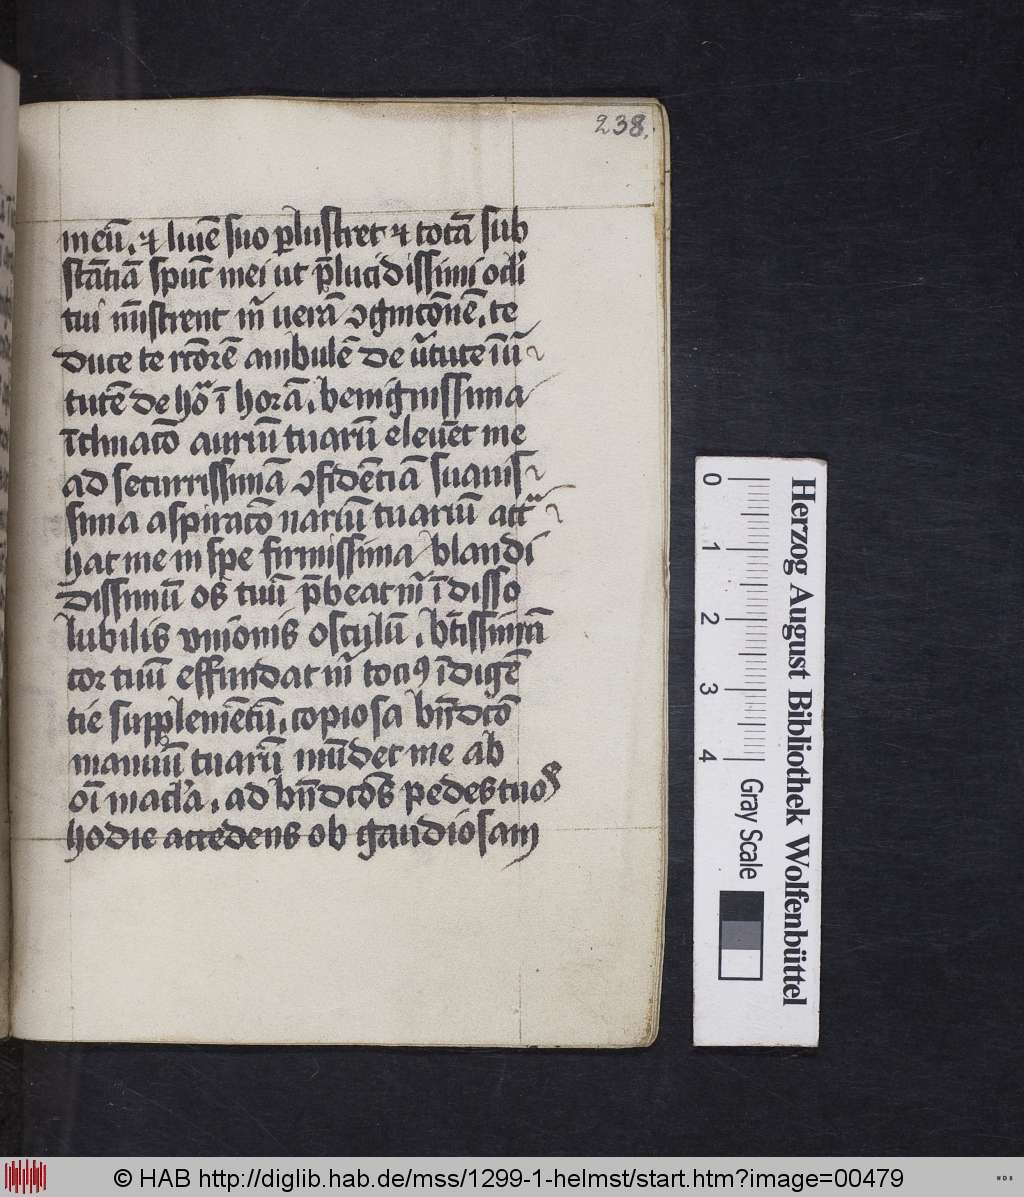 238.
meū. ⁊ lūīe suo ꝑlustret ⁊ totā sub
stātiā spūc mei ut p̄lucidissimi ocl̓i
tui mīistrent m̄ uerā ꝯgnicōnē. te
duce te rc̄orē ambulē de ūtute ī ū
tutē de ho᷑ ī horā. benignissima
īclinatō auriū tuarū eleuēt me
ad securissimā ꝯfidēciā suauis
sima aspiratō nariū tuariū att᷑
hat me in spe firmissima blandi
dissimū os tuū p̄beat m̄ īdisso
lubilis vnionis osculū. bt̄issimū
cor tuū effundat m̄ tociꝰ īdigē
tie supplemētū. copiosa bn̄dcō
manuū tuarū mūdet me ab
oī macl̓a. ad bn̄dcōs pedes tuos
hodie accedens ob gaudiosam
0 1 2 3 4
Herzog August Bibliothek Wolfenbüttel
Gray Scale
© HAB http://diglib.hab.de/mss/1299-1-helmst/start.htm?image=00479